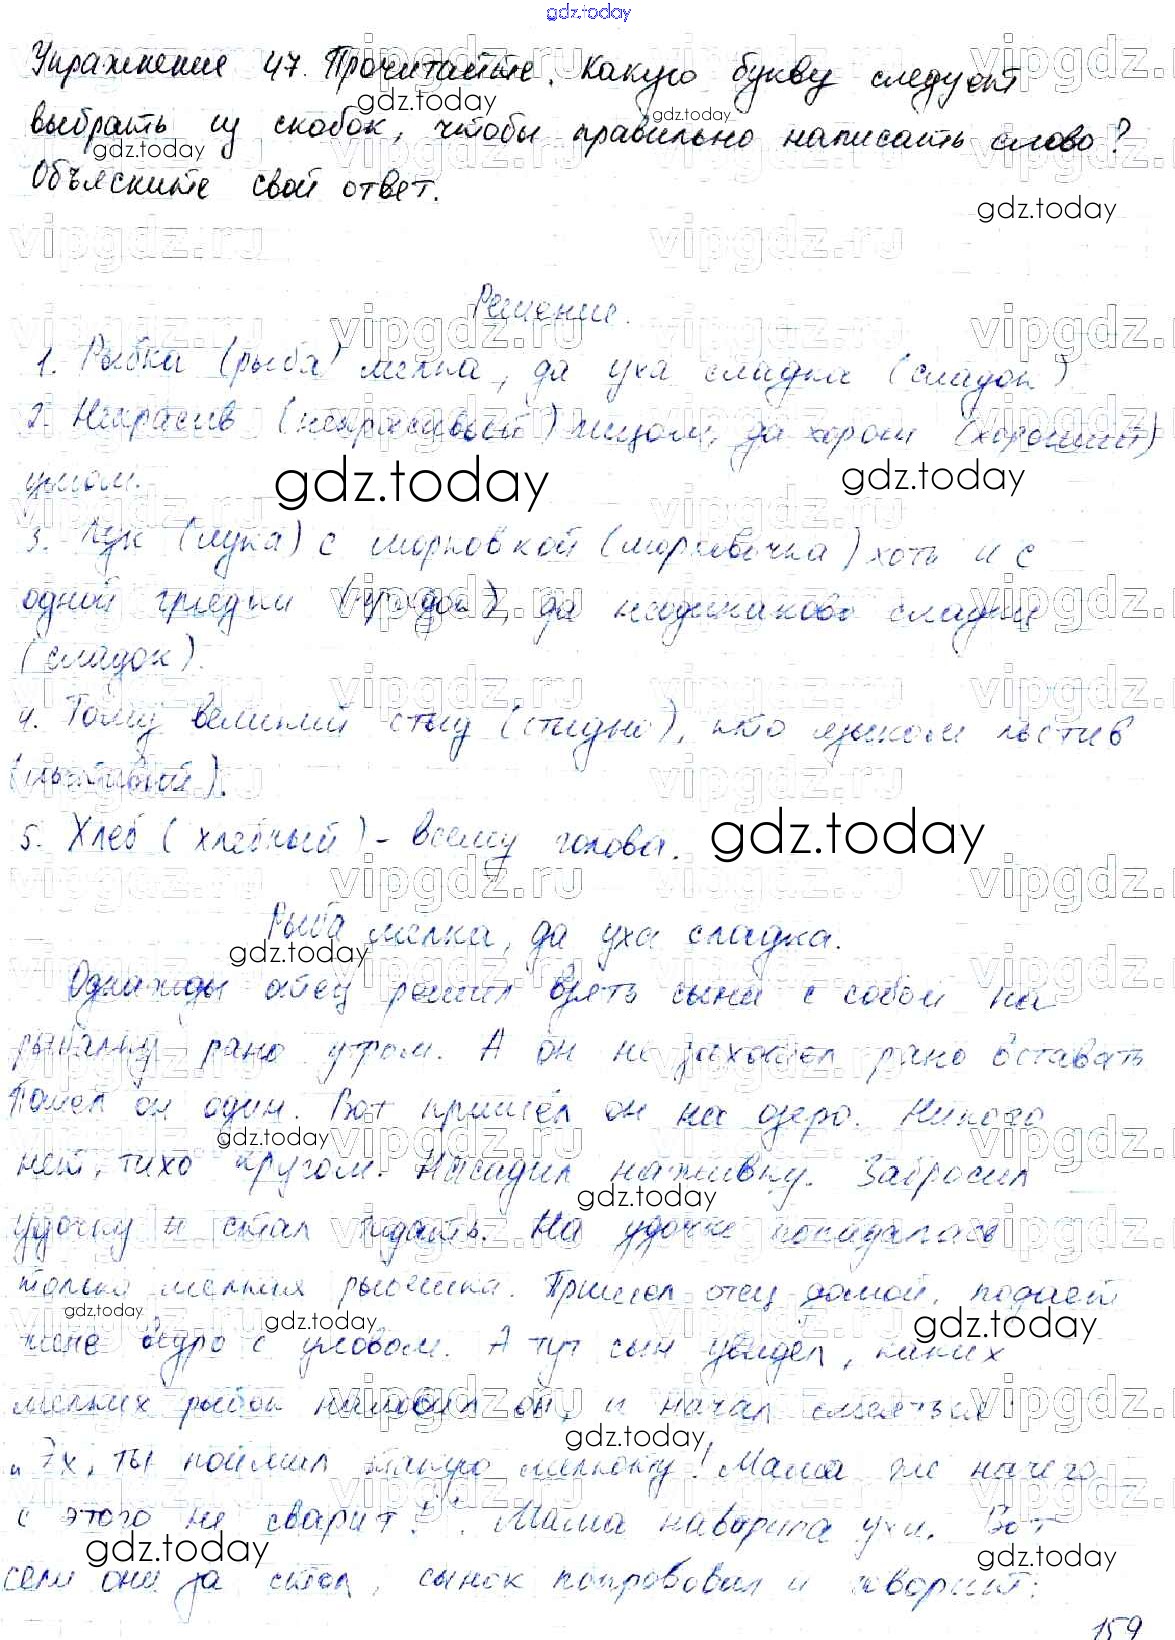 gdz.today
Упражнение 47. Прочитайте. Какую букву следует
выбрать из скобок, чтобы правильно написать слово?
Объясните свой ответ.
Решение.
1. Рыбка (рыба) мелка, да уха сладка (сладок)
2. Некрасив (некрасивый) лицом, да хорош (хороший)
умом.
3. Лук (лука) с морковкой (морковочка) хоть и с
одной грядки (грядок), да неодинаково сладки
(сладок).
4. Тому великий стыд (стыдно), кто языком льстив
(льстивый).
5. Хлеб (хлебный) - всему голова.
Рыба мелка, да уха сладка.
Однажды отец решил взять сына с собой на
рыбалку рано утром. А он не захотел рано вставать
Пошёл он один. Вот пришёл он на озеро. Никого
нет, тихо кругом. Насадил наживку. Забросил
удочку и стал ждать. На удочку попадалась
только мелкая рыбёшка. Пришёл отец домой, подаёт
жене ведро с уловом. А тут сын увидел, каких
мелких рыбок наловил он, и начал смеяться:
"Эх, ты поймал такую мелкоту! Мама же ничего
с этого не сварит!". Мама наварила ухи. Вот
сели они за стол, сынок попробовал и говорит:
159